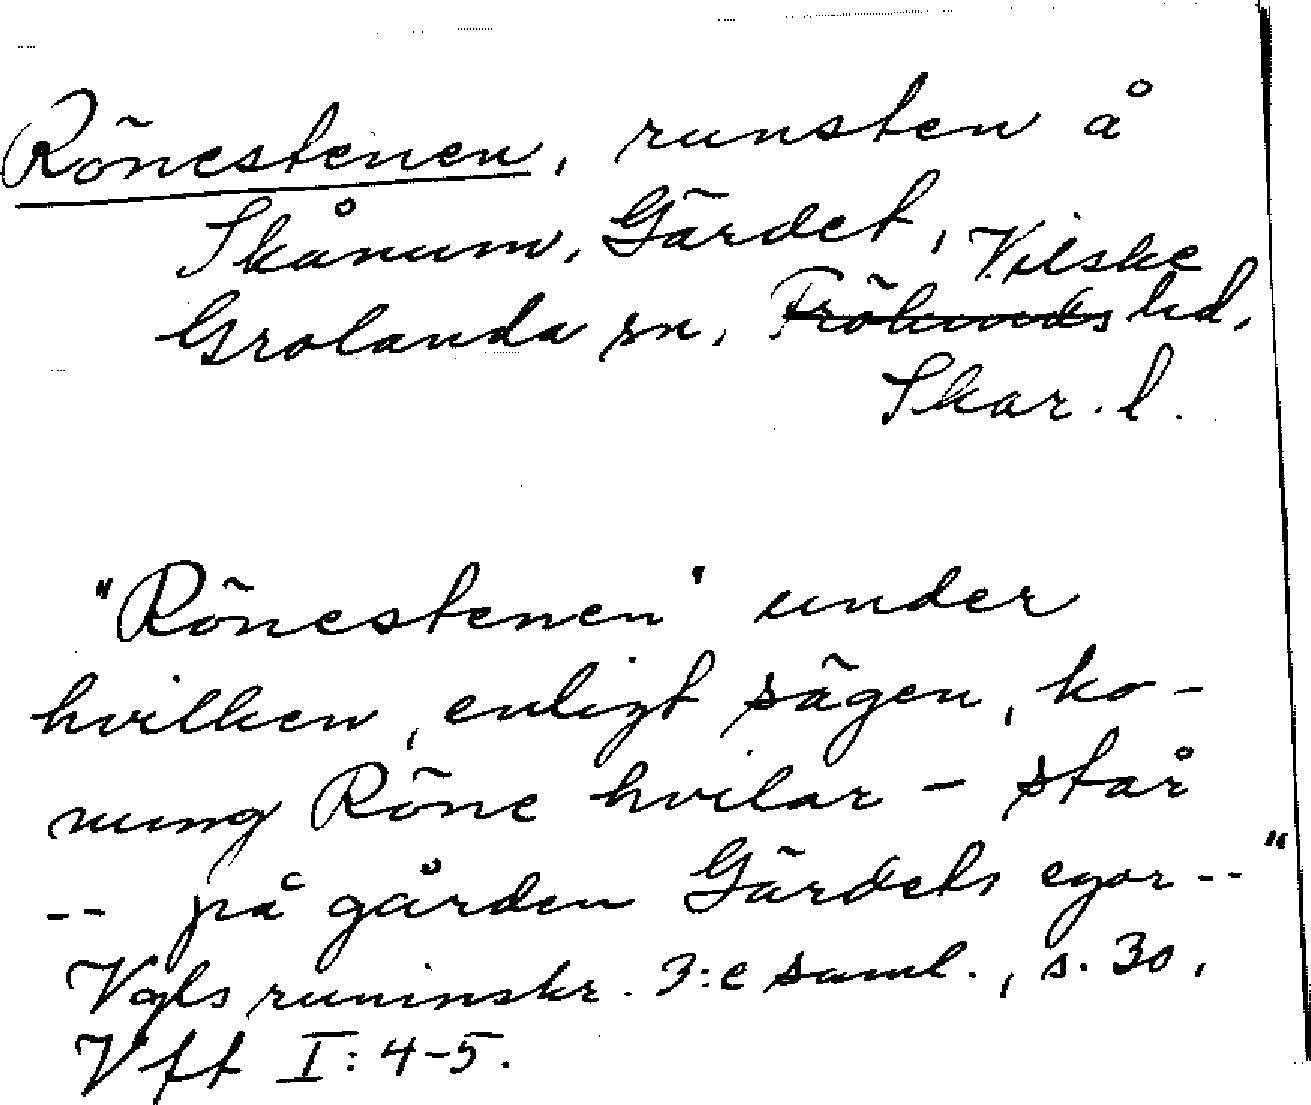 Rönestenen, runsten å
Skånum, Gärdet, Vilske
Grolanda sn, Frökinds hd,
Skar. l.
"Rönestenen" under
hvilken, enligt sägen, ko-
nung Röne hvilar - står
-- på gården Gärdets egor --"
Vgls runinskr. 3:e saml., s. 30,
Vft I: 4-5.